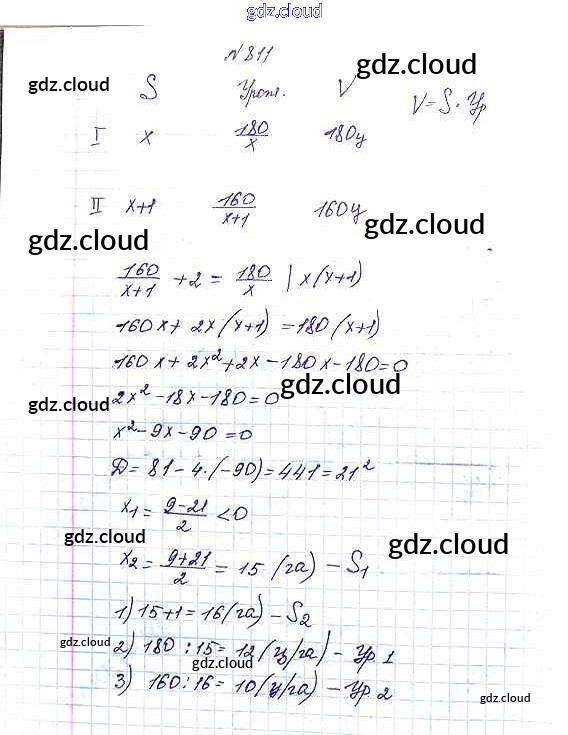 gdz.cloud
N 811
gdz.cloud gdz.cloud
S Урож. V V = S · Ур
I x 180/x 180ц
II x+1 160/(x+1) 160ц
gdz.cloud gdz.cloud
160/(x+1) + 2 = 180/x | x(x+1)
160x + 2x(x+1) = 180(x+1)
160x + 2x² + 2x - 180x - 180 = 0
gdz.cloud
2x² - 18x - 180 = 0
gdz.cloud
x² - 9x - 90 = 0
Д = 81 - 4·(-90) = 441 = 21²
x₁ = (9-21)/2 < 0
gdz.cloud gdz.cloud
x₂ = (9+21)/2 = 15 (га) - S₁
1) 15+1 = 16 (га) - S₂
gdz.cloud
2) 180 : 15 = 12 (ц/га) - Ур 1
gdz.cloud
3) 160 : 16 = 10 (ц/га) - Ур 2
gdz.cloud